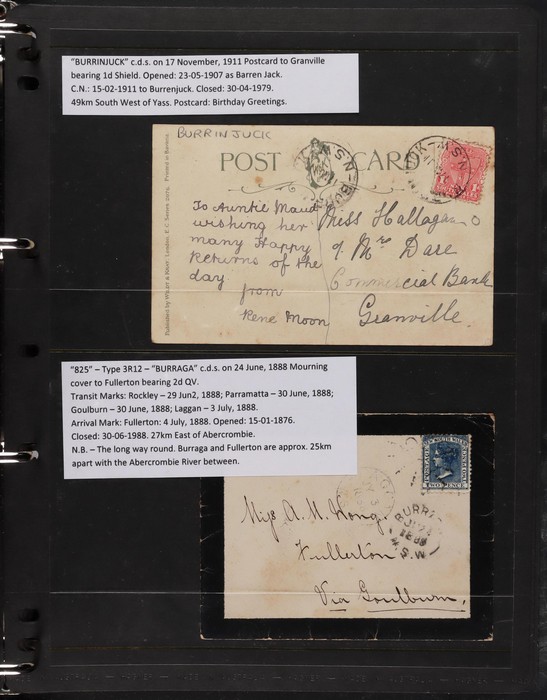 "BURRINJUCK" c.d.s. on 17 November, 1911 Postcard to Granville
bearing 1d Shield. Opened: 23-05-1907 as Barren Jack.
C.N.: 15-02-1911 to Burrenjuck. Closed: 30-04-1979.
49km South West of Yass. Postcard: Birthday Greetings.
BURRINJUCK
POST CARD
To Auntie Maud
wishing her
many Happy
Returns of the
day
from
Rene Moon
Miss Hallagan
c/o Mrs Dare
Commercial Bank
Granville.
"825" – Type 3R12 – "BURRAGA" c.d.s. on 24 June, 1888 Mourning
cover to Fullerton bearing 2d QV.
Transit Marks: Rockley – 29 Jun2, 1888; Parramatta – 30 June, 1888;
Goulburn – 30 June, 1888; Laggan – 3 July, 1888.
Arrival Mark: Fullerton: 4 July, 1888. Opened: 15-01-1876.
Closed: 30-06-1988. 27km East of Abercrombie.
N.B. – The long way round. Burraga and Fullerton are approx. 25km
apart with the Abercrombie River between.
POSTAGE
TWO PENCE
BURRA
N.S.W
Miss A. M. Kong.
Fullerton
Via Goulburn.